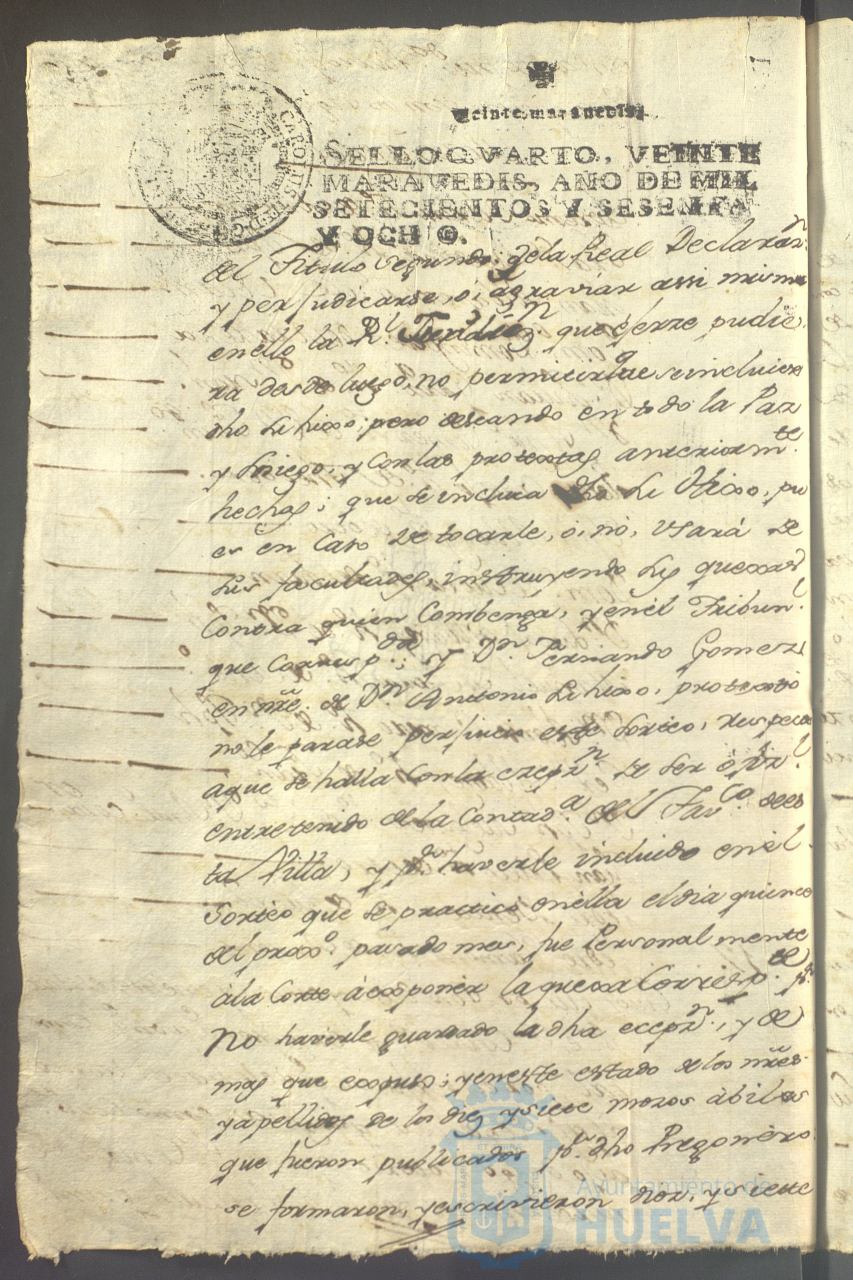 Veinte maravedis.
SELLO QVARTO, VEINTE
MARAVEDIS, AÑO DE MIL
SETECIENTOS Y SESENTA
Y OCHO.
CAROLUS III D G
del Titulo segundo, de la Real Declaraz.n
y perjudicarse, ó, agraviar assi mismo
en ello la R.l que éjerze pudie
ra desde luego, no permitir q.e se incluiera
dho Lihixo; pero deseando en todo la Paz
y sosiego, y con las protextas anteriorm.te
hechas; que se incluia dho Lihixo, pu
es en caso de tocarle, ó, nó, Usará de
sus facultades, instruyendo sus quexas
Contra quien Combenga, y en él Tribun.l
que Corresp.da; y D.n Fernando Gomez
en nre. de D.n Antonio Lihixo, protextó
no le parase perjuicio este Sorteo, respecto
a que se halla con la ezepz.n de ser
entretenido de la Contad.a del de es
ta Villa, y p.r haverle incluido en él
Sorteo que se practicó en élla el dia quince
del prox.o pasado mes, fue Personalmente
à la Corte à exponer la quexa Corresp.te p.r
No haverle guardado la dha ecepz.n, y de
mas que expuso; y en este estado de los nres
y apellidos de los diez y siete mozos abiles
que fueron publicados p.r dho Pregonero
se formaron, y escrivieron diez, y siette
Ayuntamiento de
HUELVA